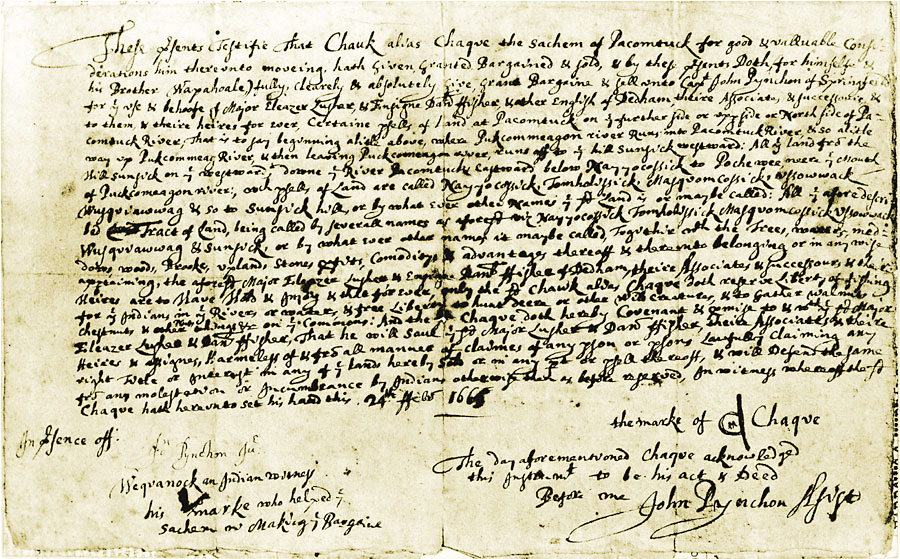 These psents Testifie That Chauk alias Chaque the Sachem of Pacomtuck for good & valluable Consi-
derations him thereunto moveing, hath Given Granted Bargained & sold, & by these psents Doth for himselfe &
his Brother (Wapahoale) fully, clearely & absolutely Give, Grant Bargaine & sell unto Capt John Pynchon of Springfeild
for ye use & behoofe of Major Eleazer Lusher, & Ensigne Daniel ffisher, & other English of Dedham, theire Associates, & successours, &
to them, & theire heires for ever, Certaine psells, of land at Pacomtuck on ye further side or upp side or North side of Pa-
comtuck River, That is to say beginning a litle above, where Puckommeag river Runs into Pacomtuck River, & so a litle
way up Puckommeag River, & then leaving Puckcomeagon river, runs off to ye hill Sunsick westward: All ye land fro the
Hill Sunsick on ye westward, downe ye River Pacomtuck Eastward below Nayyocossick to Pochewee, neere ye mouth
of Puckomeagon river; wch psells of land are called Nayyocossick, Tomholissick Masquomcossick, ussowwack
Wusquiawwag & so to Sunsick hill, or by what ever other Names ye sd land is or maybe called: All ye afore descri-
bed Tract of land, being called by severall names as aforesd viz Nayyocossick Tomholissick Masquomcossick Ussowwack
Wusquiawwag & Sunsick, or by what ever other names it maybe called, Together with the Trees, waters, mea-
dows woods, Brooks, uplands, Stones, Comoditys & advantages thereoff & thereunto belonging or in any wise
appertaining, the aforesd Major Eleazer Lusher & Ensigne Daniel ffisher of Dedham, theire Associates & Successours & their
Heires are to Have Hold & Injoy & that for ever, only the sd Chauk alias Chaque doth reserve Liberty of fishing
for ye Indians in ye Rivers or waters, & free Liberty to hunt deere, or other wild creatures, & to Gather
chestnuts, & other things &c on ye Comons: And the sd Chaque doth hereby Covenant & pmise to & with ye sd Major
Eleazer Lusher & Daniel ffisher, That he will save ye sd Major Lusher & Daniel ffisher, theire Associates & theire
Heires & assignes, Harmelesse of & fro all manner of claimes of any pson or psons Lawfully Claiming any
right title or Interest in any of ye lands hereby sold or in any pt or psell thereoff, & will Defend the same
fro any molestation or Incumbrance by Indians otherwise than is before reserved, In witness whereoff the sd
Chaque hath hereunto set his hand this 24th ffebr 1665
the marke of Chaque
In psence off
Jn Pynchon Jur
Wequanock an Indian witness
his marke who helped ye
Sachem in Making ye Bargaine
The day aforementioned Chaque acknowledged
this Instrumt to be his act & Deed
Before me John Pynchon Assist